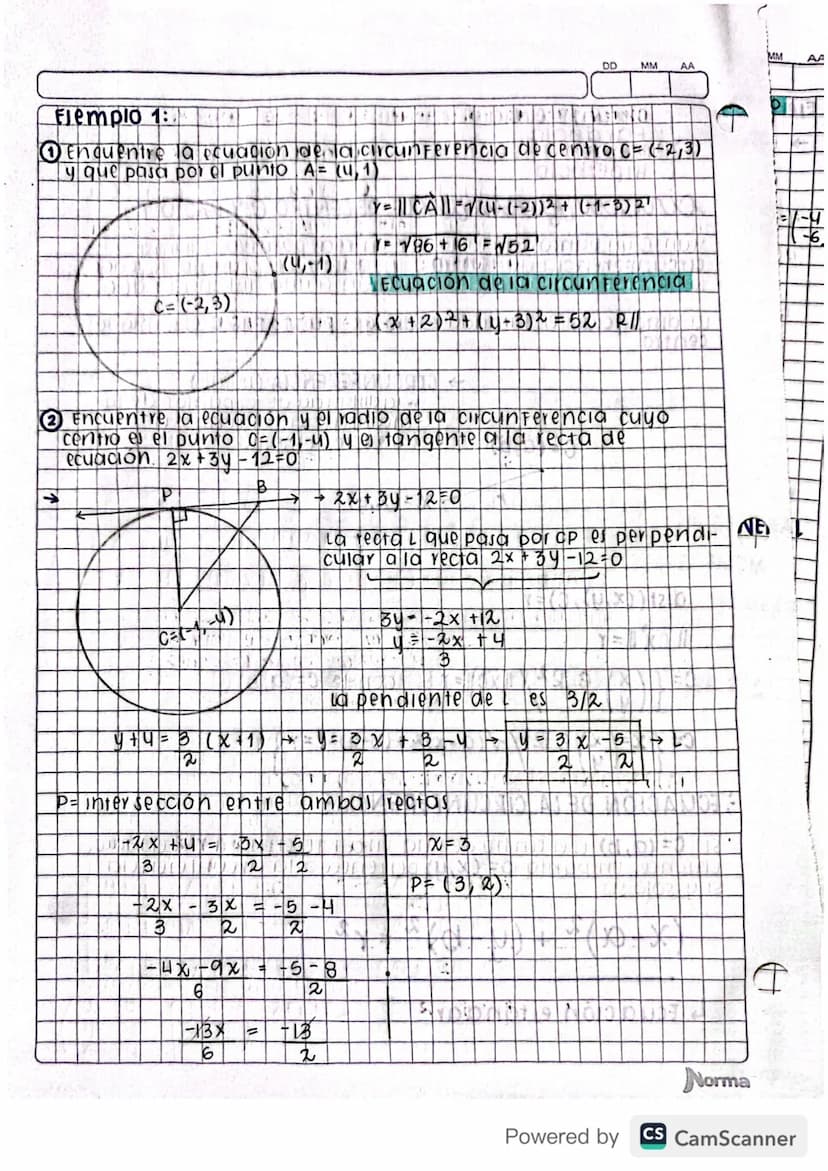 DD MM AA
MM AA
Ejemplo 1:
① Encuentre la ecuación de la circunferencia de centro C= (-2,3)
y que pasa por el punto A= (4,1)
r= ||CA|| = √(4-(-2))² + (-1-3)²
r= √36 + 16 = √52
(4,-1)
Ecuación de la circunferencia
C= (-2,3)
(x+2)² + (y-3)² = 52 R//
② Encuentre la ecuación y el radio de la circunferencia cuyo
centro es el punto C=(-1,-4) y es tangente a la recta de
ecuación 2x+3y-12=0
P B → 2x+3y-12=0
La recta L que pasa por CP es perpendi-
cular a la recta 2x+3y-12=0
C=(-1,-4)
3y= -2x +12
y = -2x/3 + 4
la pendiente de L es 3/2
y+4 = 3/2 (x+1) → y= 3/2 x + 3/2 -4 → y= 3/2 x -5/2 → L
P= intersección entre ambas rectas
-2x/3 +4 = 3x/2 - 5/2
x=3
P= (3,2)
-2x/3 - 3x/2 = -5/2 -4
-4x-9x/6 = -5-8/2
-13x/6 = -13/2
Norma
Powered by CS CamScanner